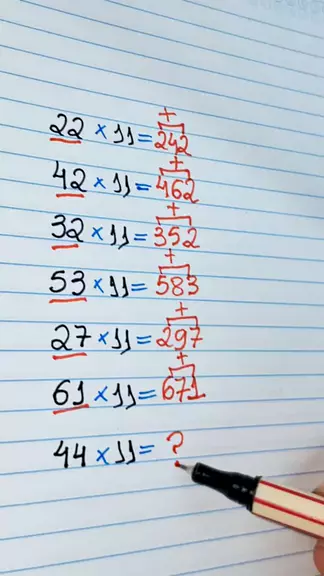 22 × 11 = 242
42 × 11 = 462
32 × 11 = 352
53 × 11 = 583
27 × 11 = 297
61 × 11 = 671
44 × 11 = ?